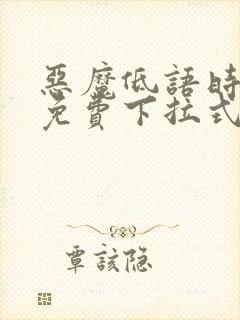 惡魔低語時
免費下拉式
覃該隐